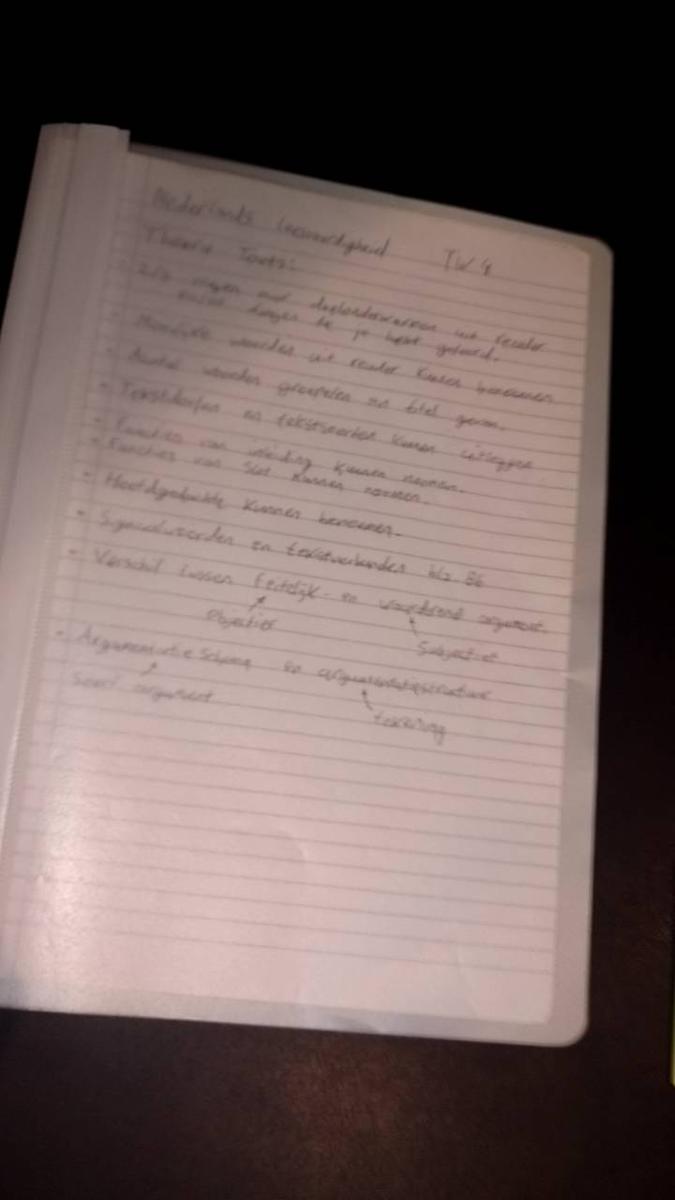 Nederlands leesvaardigheid TW 4
Theorie Toets:
vragen over uit reader
dingen je hebt geleerd.
woorden uit reader kunnen benoemen
Aantal woorden groeperen en titel geven.
Tekstdoelen en tekstsoorten kunnen uitleggen
Functies van inleiding kunnen noemen.
Functies van slot kunnen noemen.
Hoofdgedachte kunnen benoemen.
Signaalwoorden en tekstverbanden blz 86
Verschil tussen feitelijk- en waarderend argument.
Objectief
Subjectief
Argumentatie schema en argumentatiestructuur
Soort argument
tekening